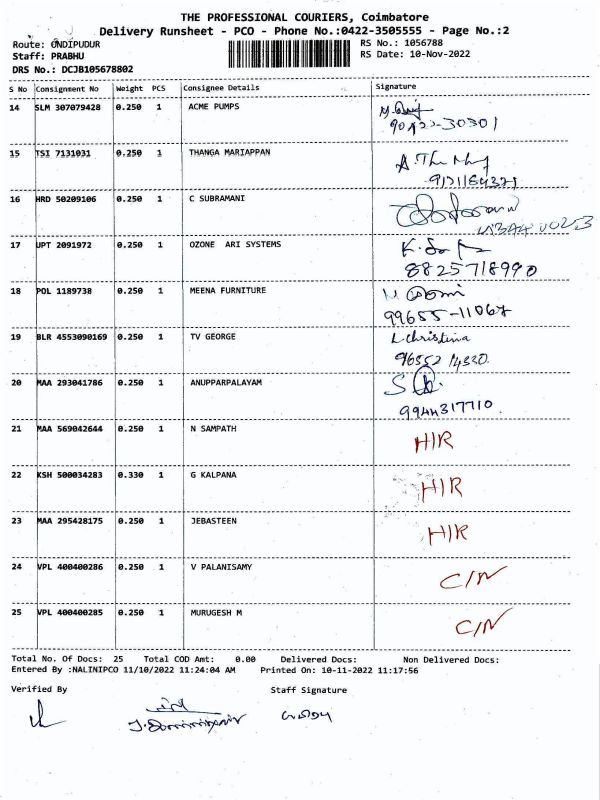 THE PROFESSIONAL COURIERS, Coimbatore
Delivery Runsheet - PCO - Phone No.:0422-3505555 - Page No.:2
Route: ONDIPUDUR RS No.: 1056788
Staff: PRABHU RS Date: 10-Nov-2022
DRS No.: DCJB105678802
S No Consignment No Weight PCS Consignee Details Signature
14 SLM 307079428 0.250 1 ACME PUMPS
15 TSI 7131031 0.250 1 THANGA MARIAPPAN
16 HRD 50209106 0.250 1 C SUBRAMANI
17 UPT 2091972 0.250 1 OZONE ARI SYSTEMS
8825718990
18 POL 1189738 0.250 1 MEENA FURNITURE
99655-11067
19 BLR 4553090169 0.250 1 TV GEORGE L.christina
96552 14330
20 MAA 293041786 0.250 1 ANUPPARPALAYAM
9944317710
21 MAA 569042644 0.250 1 N SAMPATH H/R
22 KSH 500034283 0.330 1 G KALPANA H/R
23 MAA 295428175 0.250 1 JEBASTEEN H/R
24 VPL 400400286 0.250 1 V PALANISAMY C/N
25 VPL 400400285 0.250 1 MURUGESH M C/N
Total No. Of Docs: 25 Total COD Amt: 0.00 Delivered Docs: Non Delivered Docs:
Entered By :NALINIPCO 11/10/2022 11:24:04 AM Printed On: 10-11-2022 11:17:56
Verified By Staff Signature